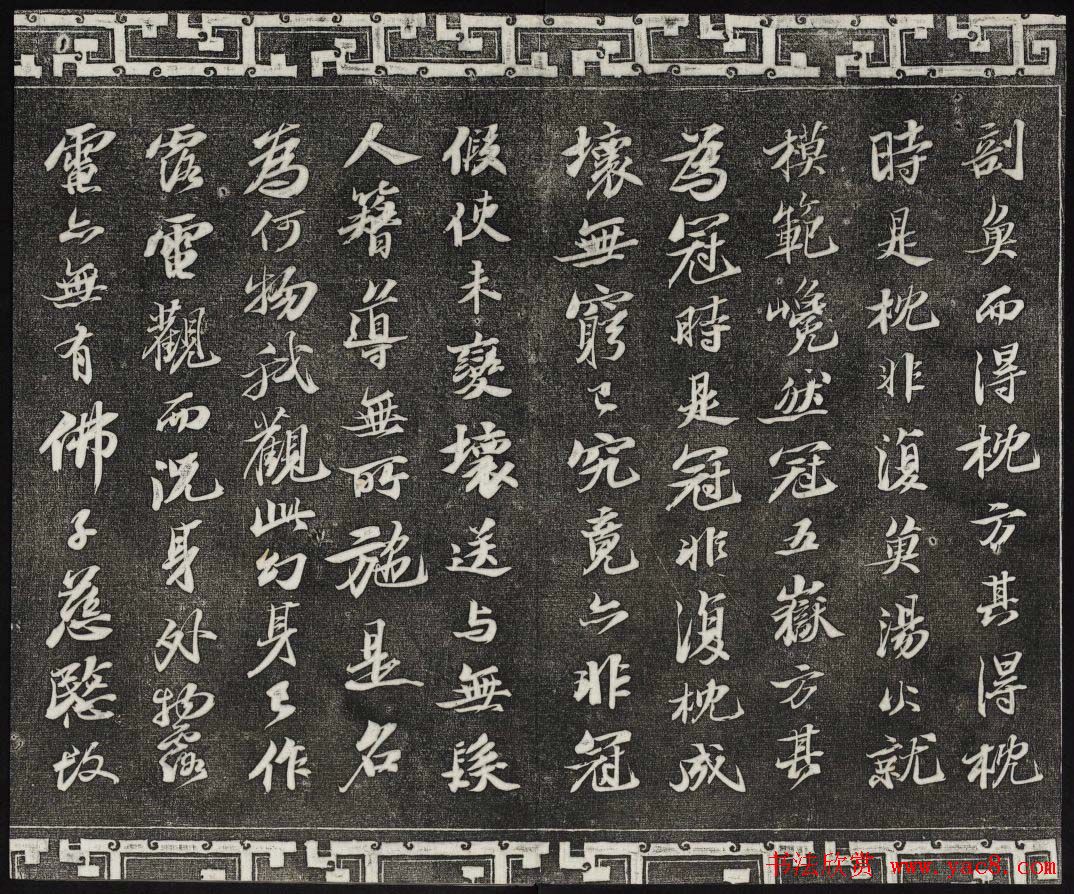 剖魚而得枕方其得枕
時是枕非復魚湯火就
模範巉然冠五嶽方其
為冠時是冠非復枕成
壞無窮已究竟亦非冠
假使未變壞送与無髮
人簪導無所施是名
為何物我觀此幻身已作
露電觀而況身外物露
電亦無有佛子慈愍故
书法欣赏 www.yac8.com